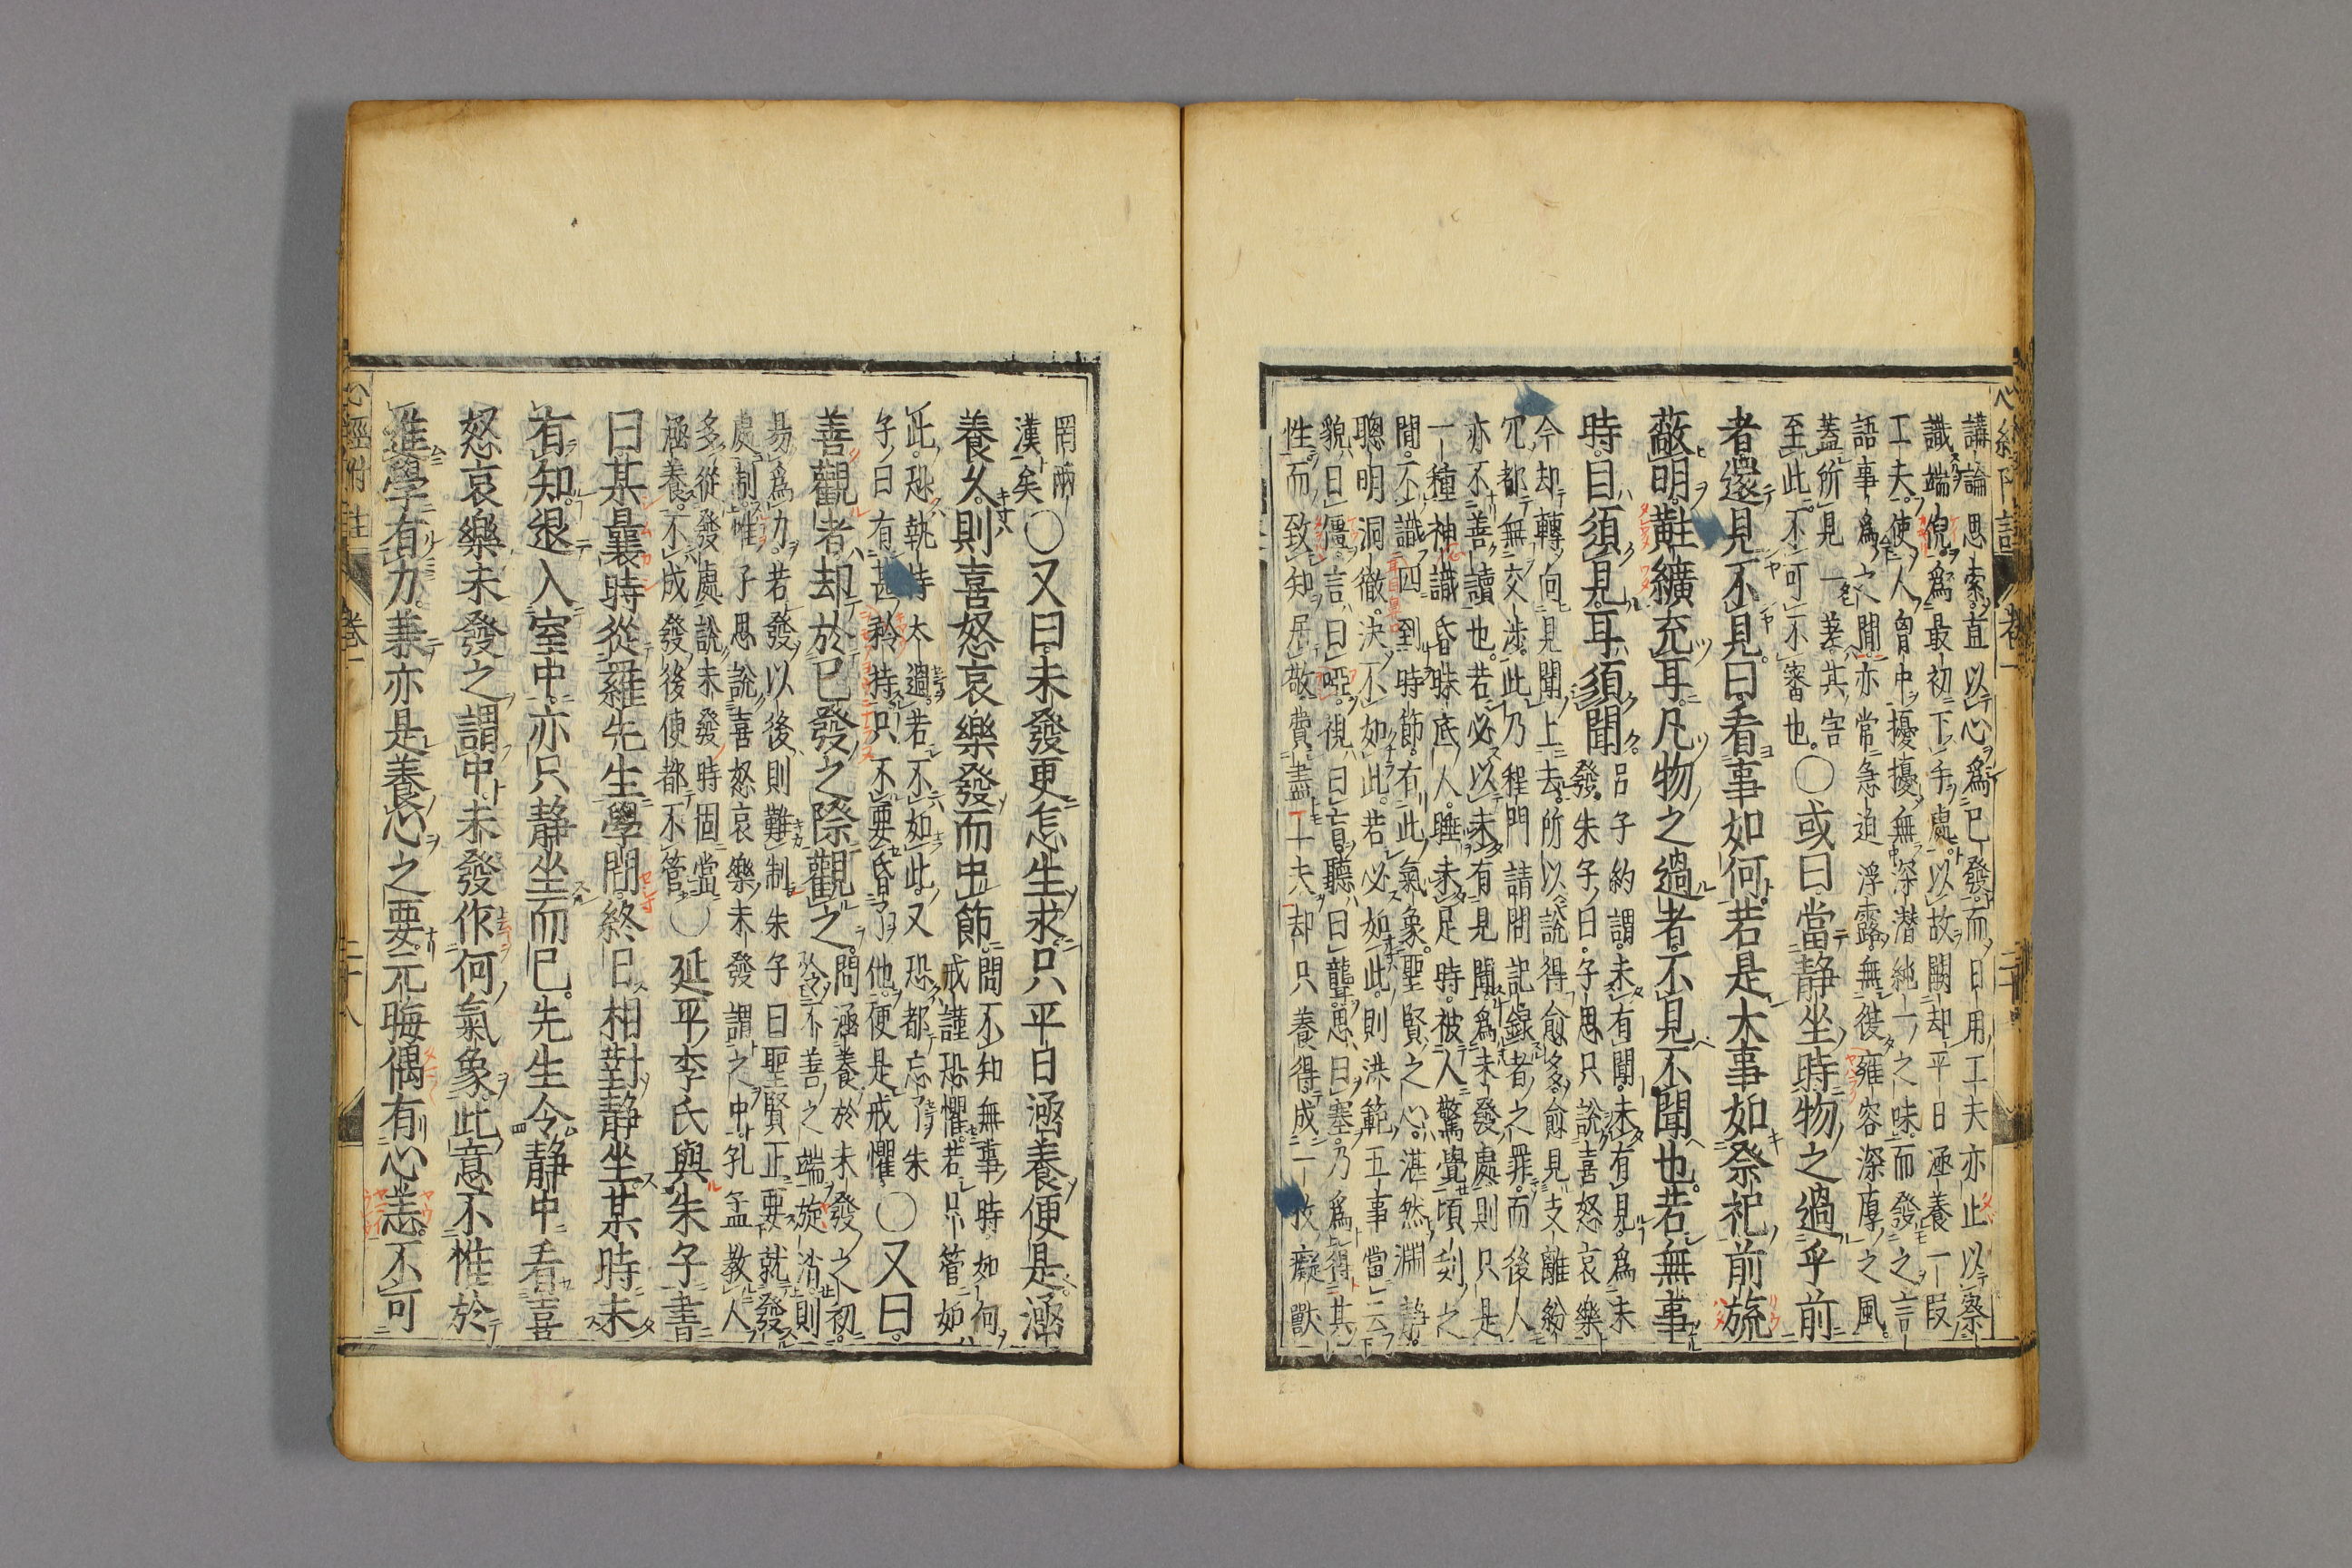 心經附註 卷一 二十
講論思索直以心爲已發而日用工夫亦止以察
識端倪爲最初下手處以故闕却平日涵養一段
工夫使人胷中擾擾無深潛純一之味而發之言
語事爲之間亦常急迫浮露無復雍容深厚之風
蓋所見一差其害
至此不可不審也
○或曰當静坐時物之過乎前
者還見不見曰看事如何若是大事如祭祀前旒
蔽明黈纊充耳凡物之過者不見不聞也若無事
時目須見耳須聞
呂子約謂未有聞未有見爲未
發朱子曰子思只說喜怒哀樂
今却轉向見聞上去所以說得愈多愈見支離紛
冗都無交渉此乃程門請問記錄者之罪而後人
亦不善讀也若必以未有見聞爲未發處則只是
一種神識昏昧底人睡未足時被人驚覺頃刻之
間不識四到時節有此氣象聖賢之心湛然淵静
聰明洞徹決不如此若必如此則洪範五事當云
貌曰僵言曰啞視曰盲聽曰聾思曰塞乃爲得其
性而致知居敬費盡工夫却只養得成一枚癡獸
罔兩
漢矣
○又曰未發更怎生求只平日涵養便是涵
養久則喜怒哀樂發而中節
問不知無事時如何
戒謹恐懼若只管如
此恐執持太過若不如此又恐都忘了朱
子曰有甚矜持只不要昏了他便是戒懼
○又曰
善觀者却於已發之際觀之
問涵養於未發之初
令不善之端旋消則
易爲力若發以後則難制朱子曰聖賢正要就發
處制惟子思說喜怒哀樂未發謂之中孔孟教人
多從發處說未發時固當
涵養不成發後便都不管
○延平李氏與朱子書
曰某曩時從羅先生學問終日相對静坐某時未
有知退入室中亦只静坐而已先生令静中看喜
怒哀樂未發之謂中未發作何氣象此意不惟於
進學有力兼亦是養心之要元晦偶有心恙不可
心經附註 卷一 二十八